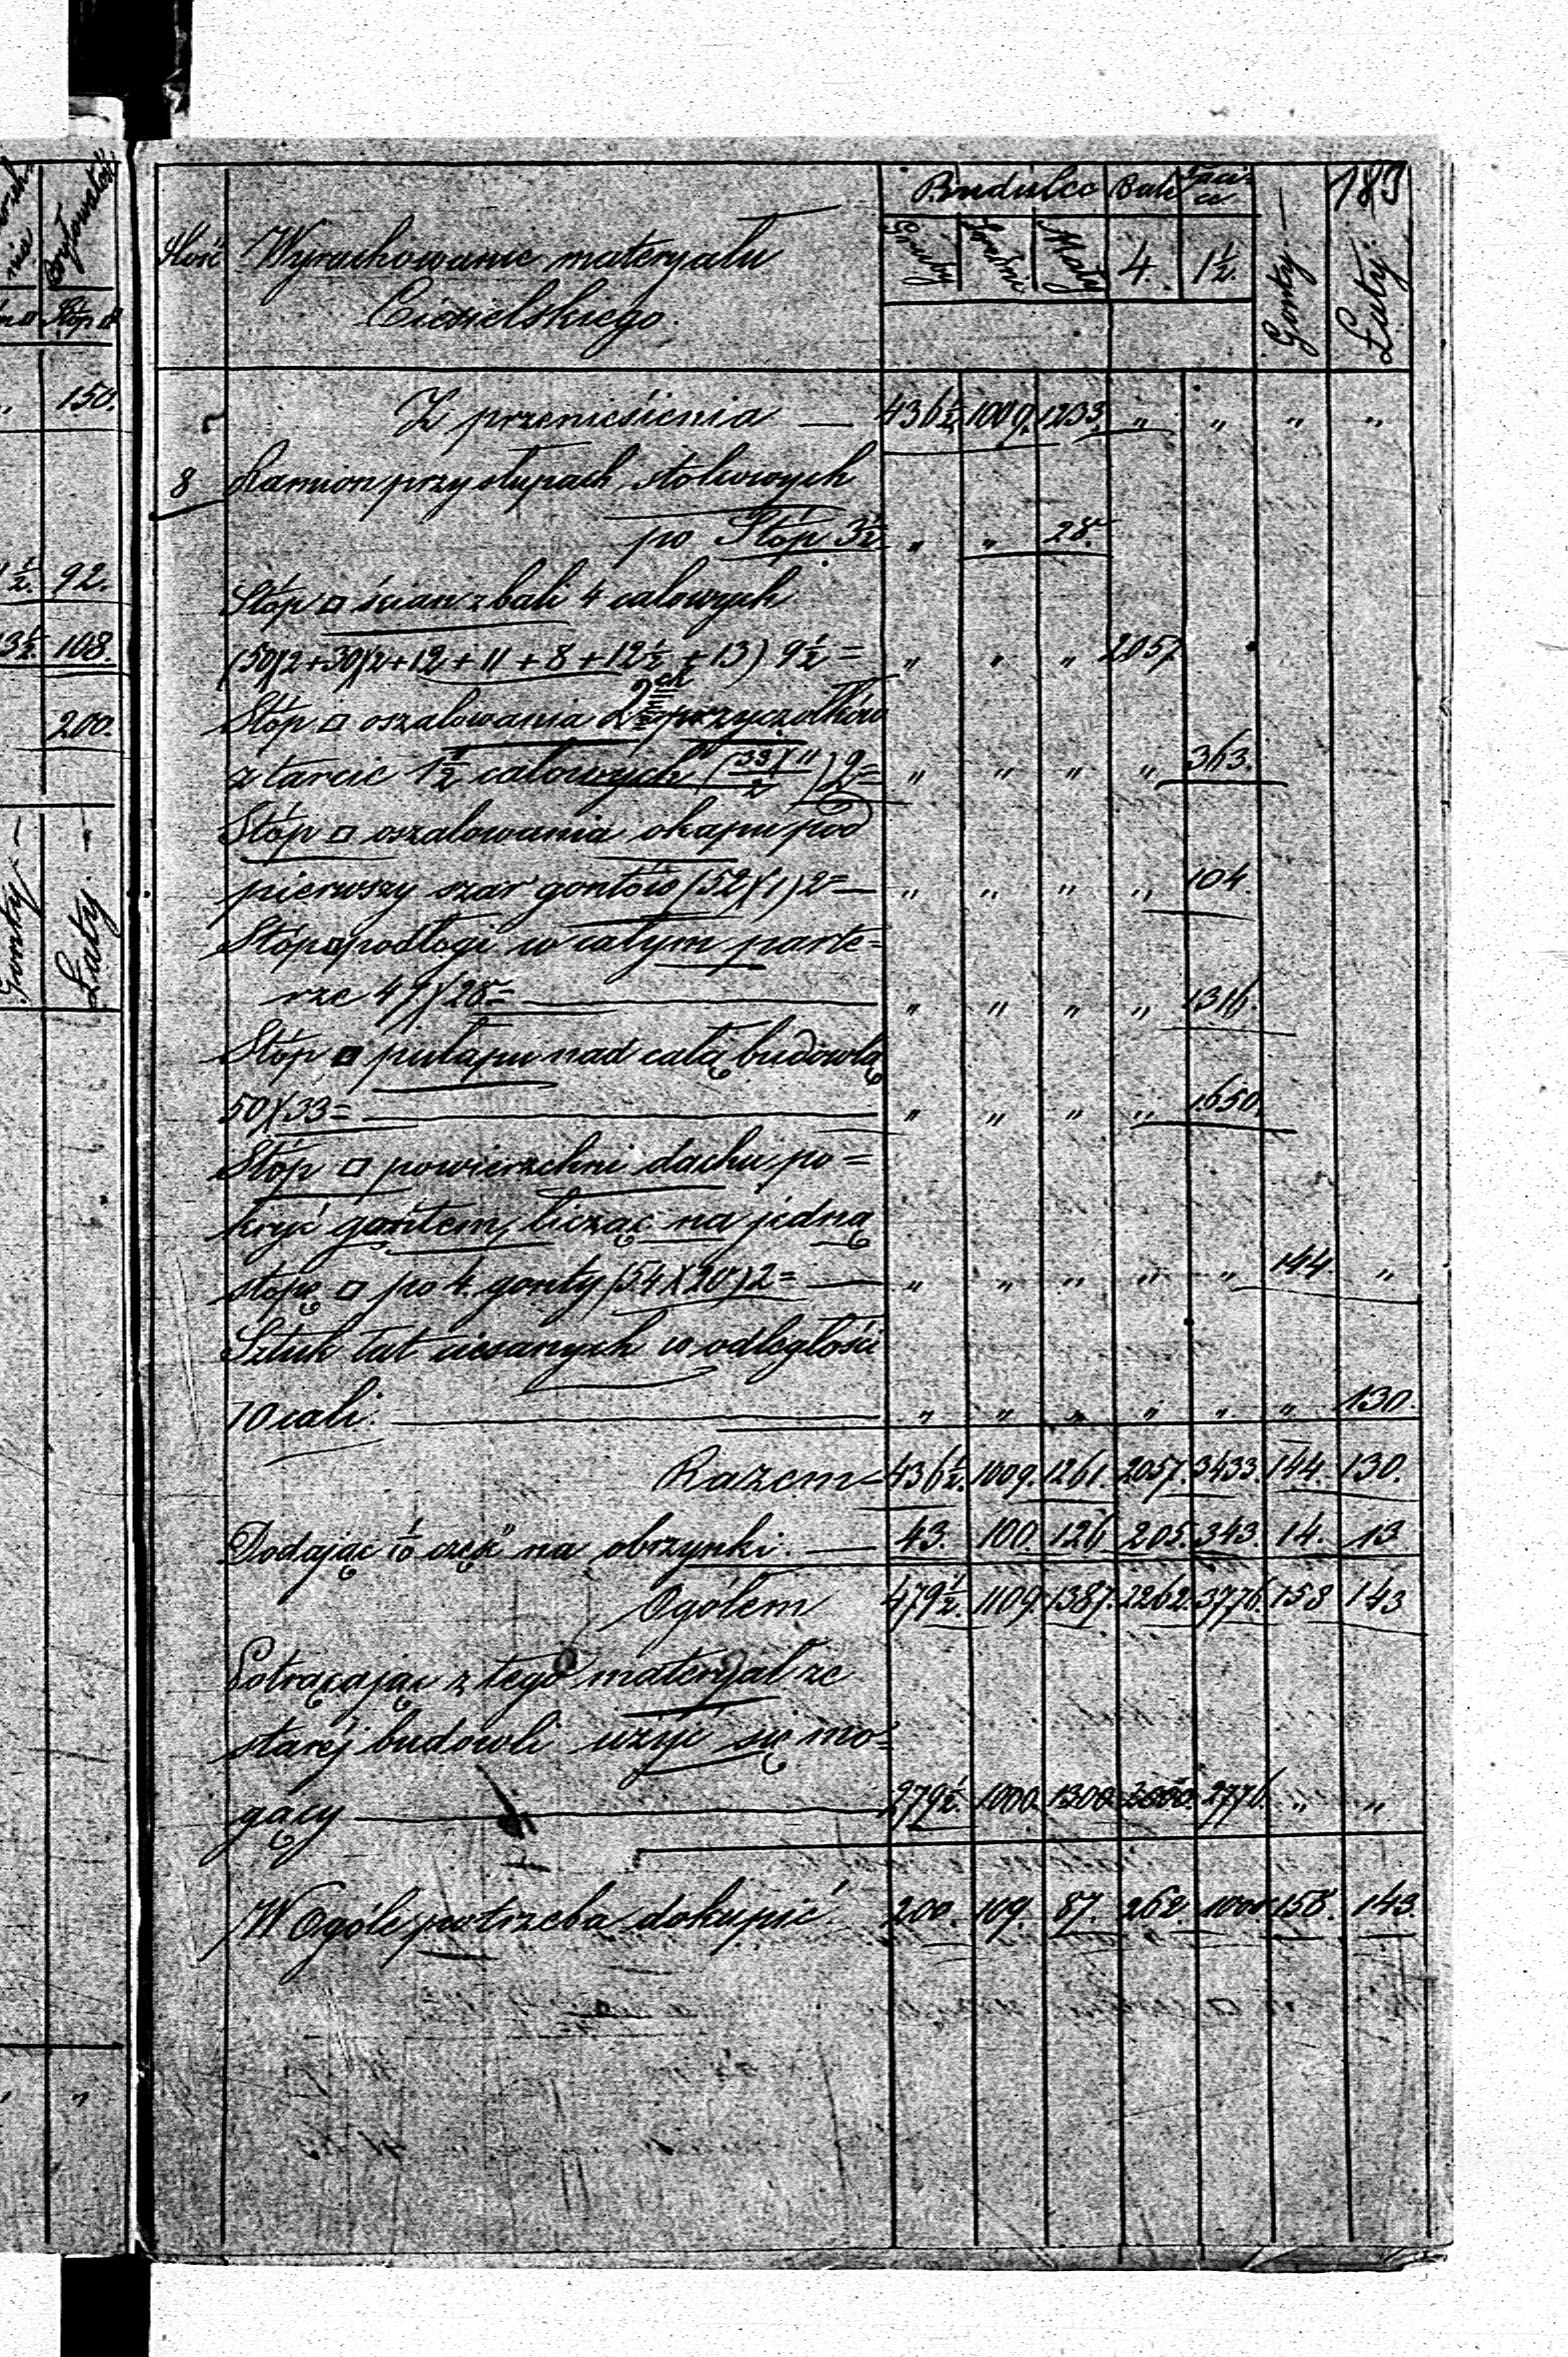 nia
Stóp □
150.
½. 92.
3½. 108.
200.
Gonty. —
Łaty. —
"
183
Budulec Bale Tarcice
Gruby Średni Mały 4. 1½. Gonty. — Łaty. —
Ilość Wyrachowanie materyału
Ciesielskiego.
Z przeniesienia — 436½ 1009. 1233. " " " "
8 Ramion przy słupach stolcowych
po Stóp 3½ " " 28.
Stóp □ ścian z bali 4 calowych
(50)(2+30)(2+12+11+8+12½+13) 9½= " " " 2057
Stóp □ oszalowania 2ch przyczółków
z tarcic 1½ calowych (33)(11/2)2= " " " " 363.
Stóp □ oszalowania okapu pod
pierwszy szar gontów (52)(1)2=— " " " " 104.
Stóp □ podłogi w całym parte=
rze 47)(28= — " " " " 1316.
Stóp □ pułapu nad całą budowlą
50)(33= — " " " " 1650.
Stóp □ powierzchni dachu po=
kryć gontem, licząc na jedną
stopę □ po 4. gonty (54)(20)2= — " " " " " 144. "
Sztuk łat ciesanych w odległości
10 cali. — " " " " " " 130.
Razem= 436½. 1009. 1261. 2057. 3433. 144. 130.
Dodając 1/10 część na obrzynki. — 43. 100. 126 205. 343. 14. 13
Ogółem 479½. 1109. 1387. 2262. 3776. 158 143
Potrącając z tego materyał ze
starej budowli użyć się mo=
gący — 279½. 1000. 1300. 2000. 2776. " "
W Ogóle potrzeba dokupić. 200. 109. 87. 262. 1000. 158. 143.